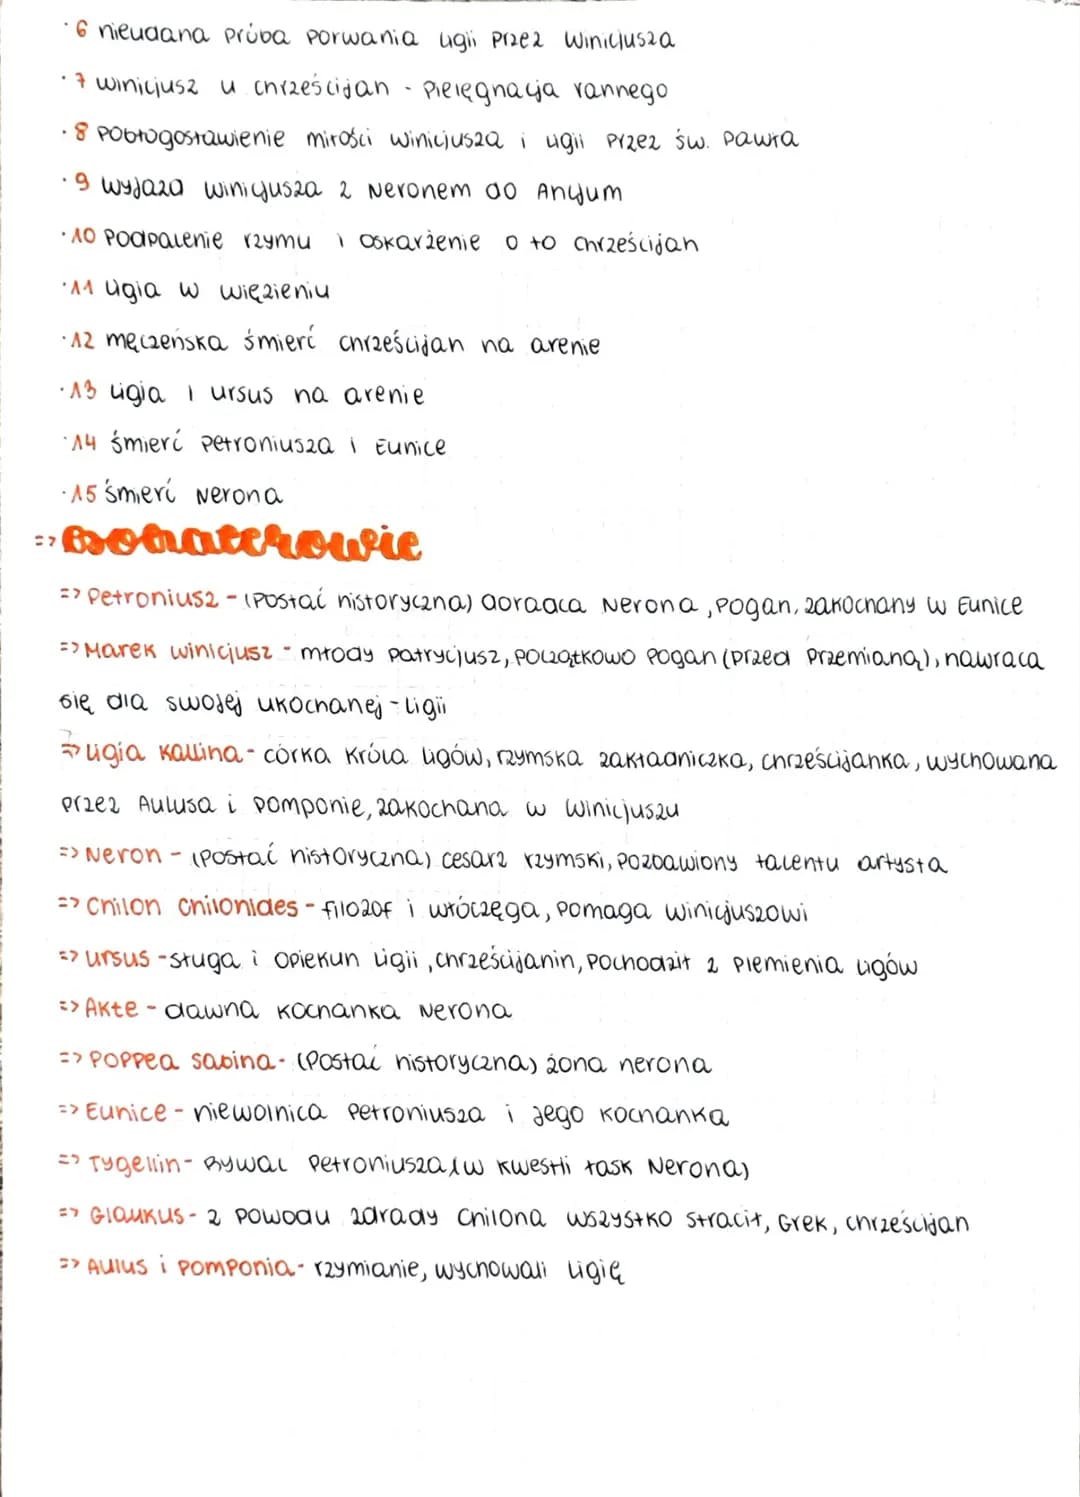 · 6 nieudana próba porwania Ligii przez Winicjusza
· 7 Winicjusz u chrześcijan - pielęgnacja rannego
· 8 Pobłogosławienie miłości Winicjusza i Ligii przez św. Pawła
· 9 wyjazd Winicjusza z Neronem do Ancjum
· 10 Podpalenie rzymu i oskarżenie o to chrześcijan
· 11 Ligia w więzieniu
· 12 męczeńska śmierć chrześcijan na arenie
· 13 Ligia i ursus na arenie
· 14 śmierć Petroniusza i Eunice
· 15 śmierć Nerona
=> Bohaterowie
=> Petroniusz - (Postać historyczna) doradca Nerona, pogan, zakochany w Eunice
=> Marek Winicjusz - młody patrycjusz, początkowo pogan (przed przemianą), nawraca
się dla swojej ukochanej - Ligii
=> Ligia Kallina - córka króla Ligów, rzymska zakładniczka, chrześcijanka, wychowana
przez Aulusa i Pomponie, zakochana w Winicjuszu
=> Neron - (postać historyczna) cesarz rzymski, pozbawiony talentu artysta
=> Chilon Chilonides - filozof i włóczęga, pomaga Winicjuszowi
=> Ursus - sługa i opiekun Ligii, chrześcijanin, pochodził z plemienia Ligów
=> Akte - dawna kochanka Nerona
=> Poppea Sabina - (Postać historyczna) żona nerona
=> Eunice - niewolnica Petroniusza i jego kochanka
=> Tygellin - Rywal Petroniusza (w kwestii łask Nerona)
=> Glaukus - z powodu zdrady Chilona wszystko stracił, Grek, chrześcijan
=> Aulus i Pomponia - rzymianie, wychowali Ligię